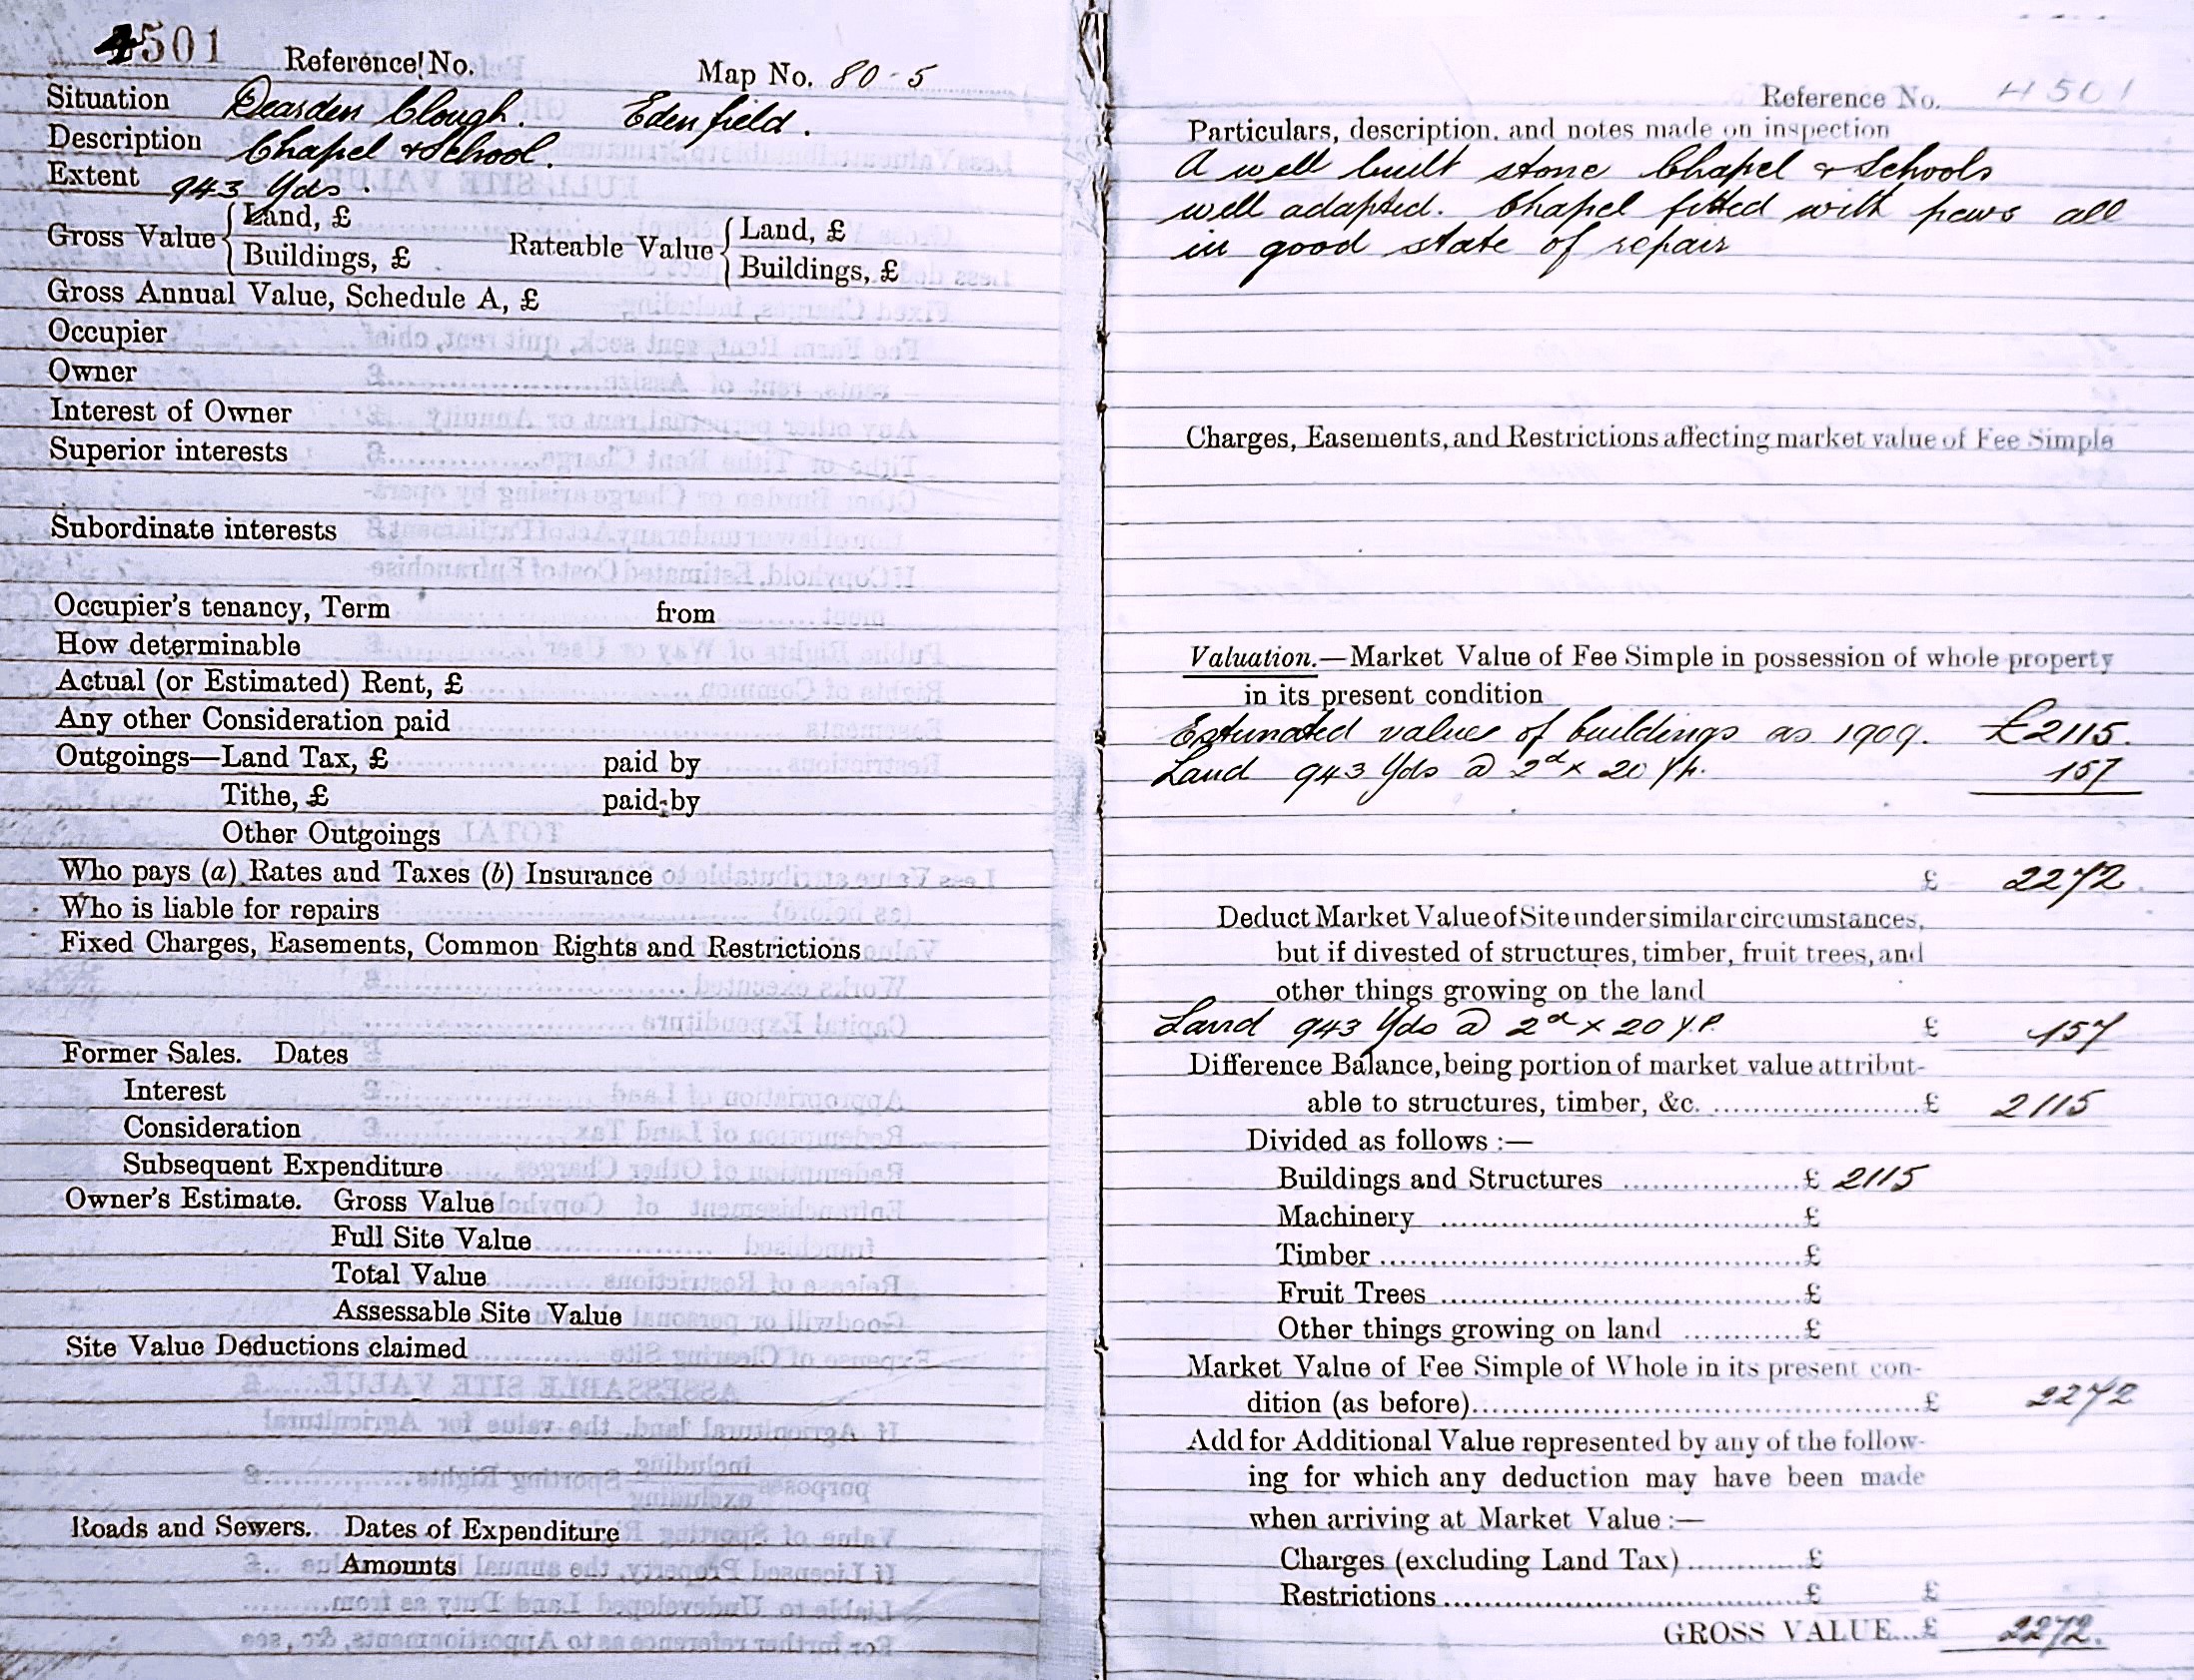 4501 Reference No. Map No. 80-5
Situation Dearden Clough. Edenfield.
Description Chapel & School.
Extent 943 Yds.
Gross Value { Land, £
Buildings, £
Rateable Value { Land, £
Buildings, £
Gross Annual Value, Schedule A, £
Occupier
Owner
Interest of Owner
Superior interests
Subordinate interests
Occupier's tenancy, Term from
How determinable
Actual (or Estimated) Rent, £
Any other Consideration paid
Outgoings—Land Tax, £ paid by
Tithe, £ paid by
Other Outgoings
Who pays (a) Rates and Taxes (b) Insurance
Who is liable for repairs
Fixed Charges, Easements, Common Rights and Restrictions
Former Sales. Dates
Interest
Consideration
Subsequent Expenditure
Owner's Estimate. Gross Value
Full Site Value
Total Value
Assessable Site Value
Site Value Deductions claimed
Roads and Sewers. Dates of Expenditure
Amounts
Reference No. 4501
Particulars, description, and notes made on inspection
A well built stone Chapel & Schools
well adapted. Chapel fitted with pews all
in good state of repair
Charges, Easements, and Restrictions affecting market value of Fee Simple
Valuation.—Market Value of Fee Simple in possession of whole property
in its present condition
Estimated value of buildings as 1909. £2115.
Land 943 Yds @ 2d x 20 Y.P. 157
£ 2272.
Deduct Market Value of Site under similar circumstances,
but if divested of structures, timber, fruit trees, and
other things growing on the land
Land 943 Yds @ 2d x 20 Y.P. £ 157
Difference Balance, being portion of market value attribut-
able to structures, timber, &c. .....................£ 2115
Divided as follows :—
Buildings and Structures ..................£ 2115
Machinery .......................................£
Timber.............................................£
Fruit Trees .......................................£
Other things growing on land ............£
Market Value of Fee Simple of Whole in its present con-
dition (as before)..............................................£ 2272
Add for Additional Value represented by any of the follow-
ing for which any deduction may have been made
when arriving at Market Value :—
Charges (excluding Land Tax)............£
Restrictions.......................................£ £
GROSS VALUE...£ 2272.